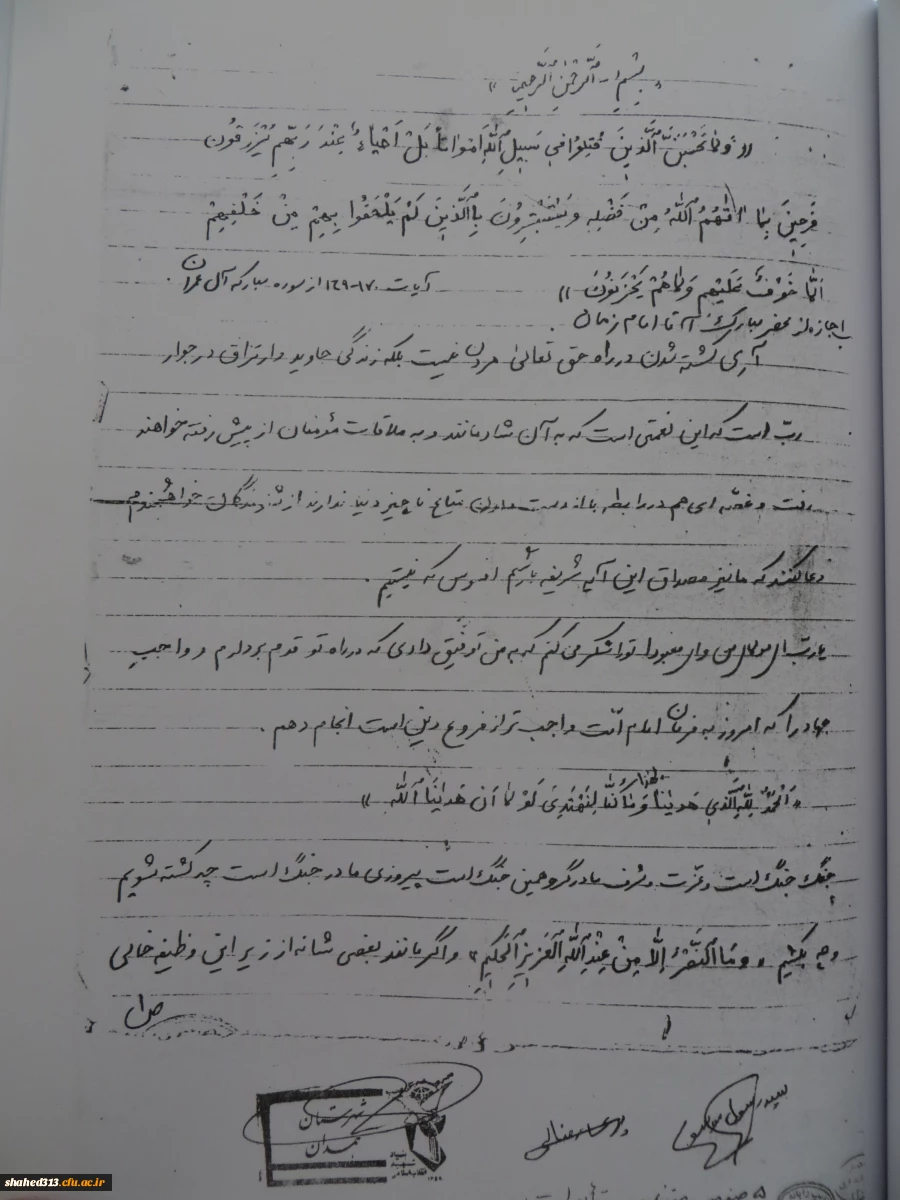 « بِسْمِ اللهِ الرَّحْمٰنِ الرَّحِیمِ »
« وَلا تَحْسَبَنَّ الَّذِینَ قُتِلُوا فِي سَبِیلِ اللهِ اَمْواتاً بَلْ اَحْیاءٌ عِنْدَ رَبِّهِمْ یُرْزَقُون
فَرِحِینَ بِما اتَهُمُ اللهُ مِنْ فَضْلِهِ وَیَسْتَبْشِرُونَ بِالَّذِینَ لَمْ یَلْحَقُوا بِهِمْ مِنْ خَلْفِهِمْ
اَلّا خَوْفٌ عَلَیْهِم وَلاهُمْ یَحْزَنُونَ » آیات ۱۷۰-۱۶۹ از سوره مبارکه آل عمران .
با اجازه از محضر مبارک آقا امام زمان .
آری کشته شدن در راه حق تعالی مردن نیست بلکه زندگی جاوید وارتزاق در جوار
ربّ است که این نعمتی است که به آن شادمانند و به ملاقات مؤمنان از پیش رفته خواهند
رفت و غصّه ای هم در رابطه با از دست دادن متاع ناچیز دنیا ندارند از خواهشمندم
دعا کنند که ما نیز مصداق این آیه شریفه باشیم افسوس که نیستیم .
یارب ای مولای من وای معبودا ترا شکر می کنم که به من توفیق دادی که در راه تو قدم بردارم و واجب
جهاد را که امروز به فرمان امام امّت واجب تر از فروع دین است انجام دهم .
« اَلْحَمْدُ لِلّهِ الَّذِي هَدینا لِهٰذا وَ مَا كُنّا لِنَهْتَدِيَ لَوْ لا اَن هَدٰینَا اللهُ »
جنگ جنگ است و عزّت و شرف ما در گرو همین جنگ است پیروزی ما در جنگ است چه کشته شویم
و چه بکشیم « وَ مَا النَّصْرُ إِلّا مِنْ عِنْدِ اللهِ الْعَزِیزِ الْحَکِیمِ » و اگر مانند بعضی شانه از زیر این وظیفه خالی
ص ۱
سید رسول
شهرستان
همدان
shahed313.cfu.ac.ir